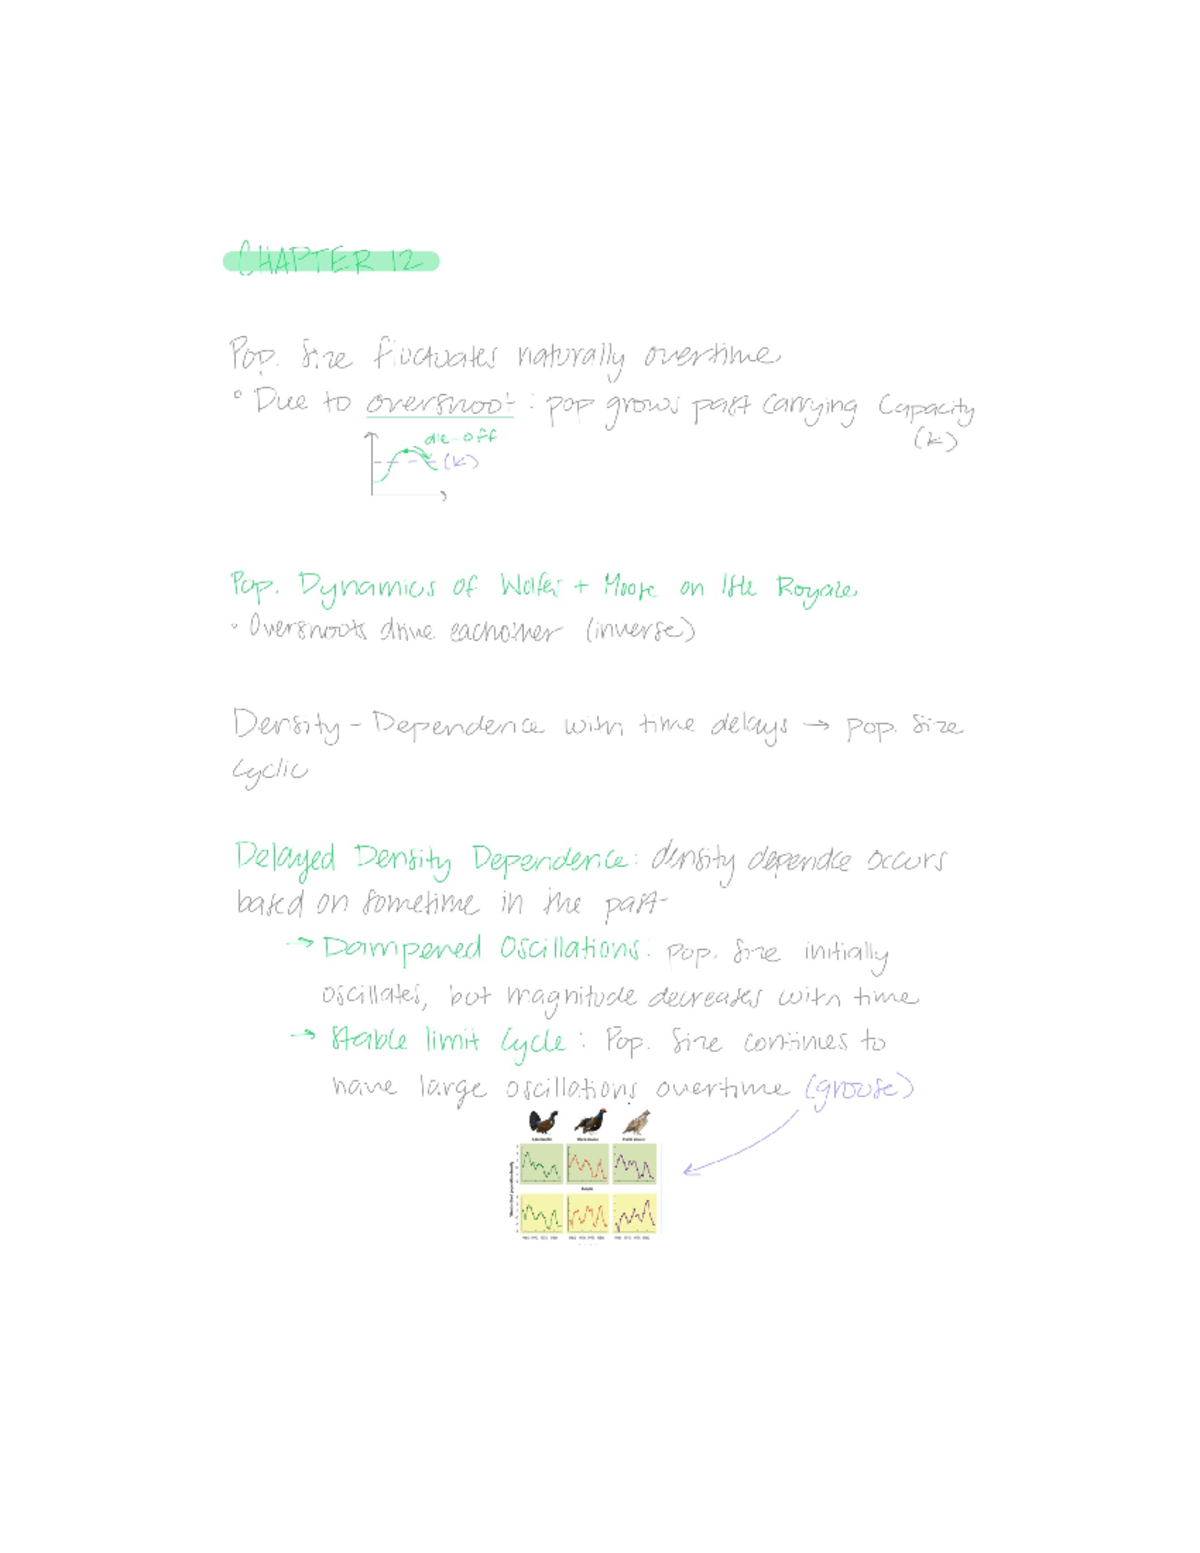 CHAPTER 12
Pop. Size fluctuates naturally overtime
° Due to overshoot : pop grows past carrying capacity
(k)
die-off
(k)
Pop. Dynamics of Wolfes + Moose on Isle Royale
• Overshoots drive eachother (inverse)
Density - Dependence with time delays → pop. size
cyclic
Delayed Density Dependence: density dependce occurs
based on sometime in the past
→ Dampened Oscillations: pop. size initially
oscillates, but magnitude decreases with time
→ Stable limit cycle : Pop. Size continues to
have large oscillations overtime (grouse)